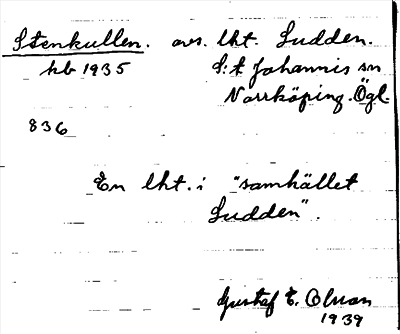 Stenkullen. avs. lht. Sudden.
hb 1935 S:t Johannis sn
Norrköping. Ögl.
836
En lht. i "samhället
Sudden".
Gustaf E. Olsson
1939